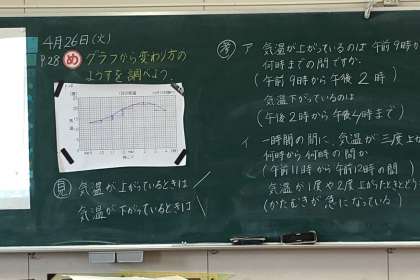 4月26日(火)
P.28 め グラフから変わり方の
ようすを調べよう。
見 気温が上がっているときは ／
気温が下がっているときは ＼
考 ア 気温が上がっているのは 午前9時か
何時までの間ですか。
(午前9時から午後2時)
気温下がっているのは
(午後2時から午後4時まで)
イ 一時間の間に、気温が三度上か
何時から何時の間か
(午前11時から午前12時の間)
気温が1度や2度上がったときと
(かたむきが急になっている)